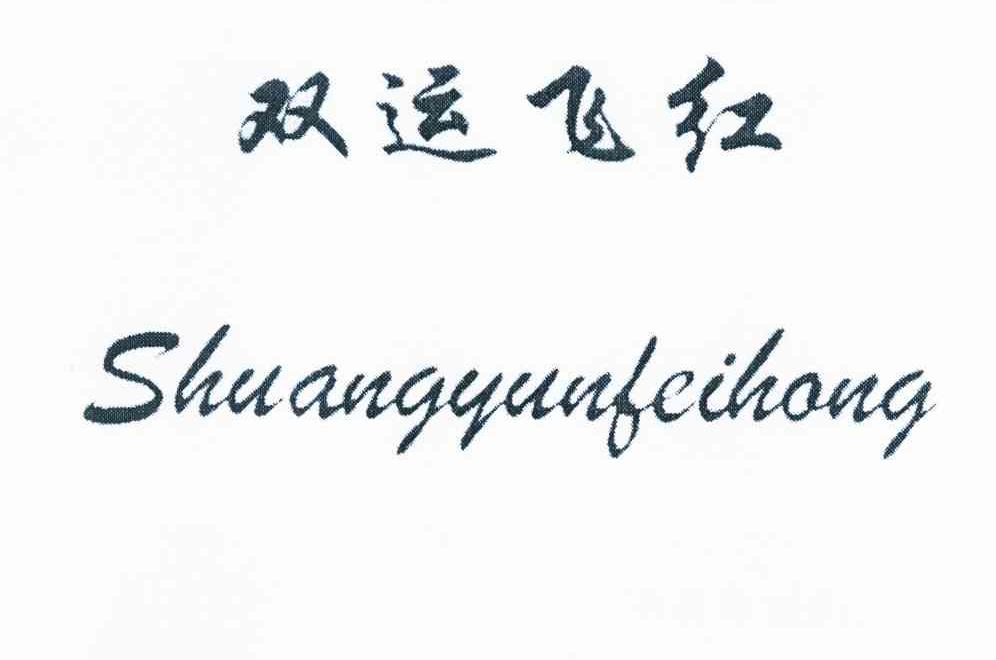 双运飞红
Shuangyunfeihong